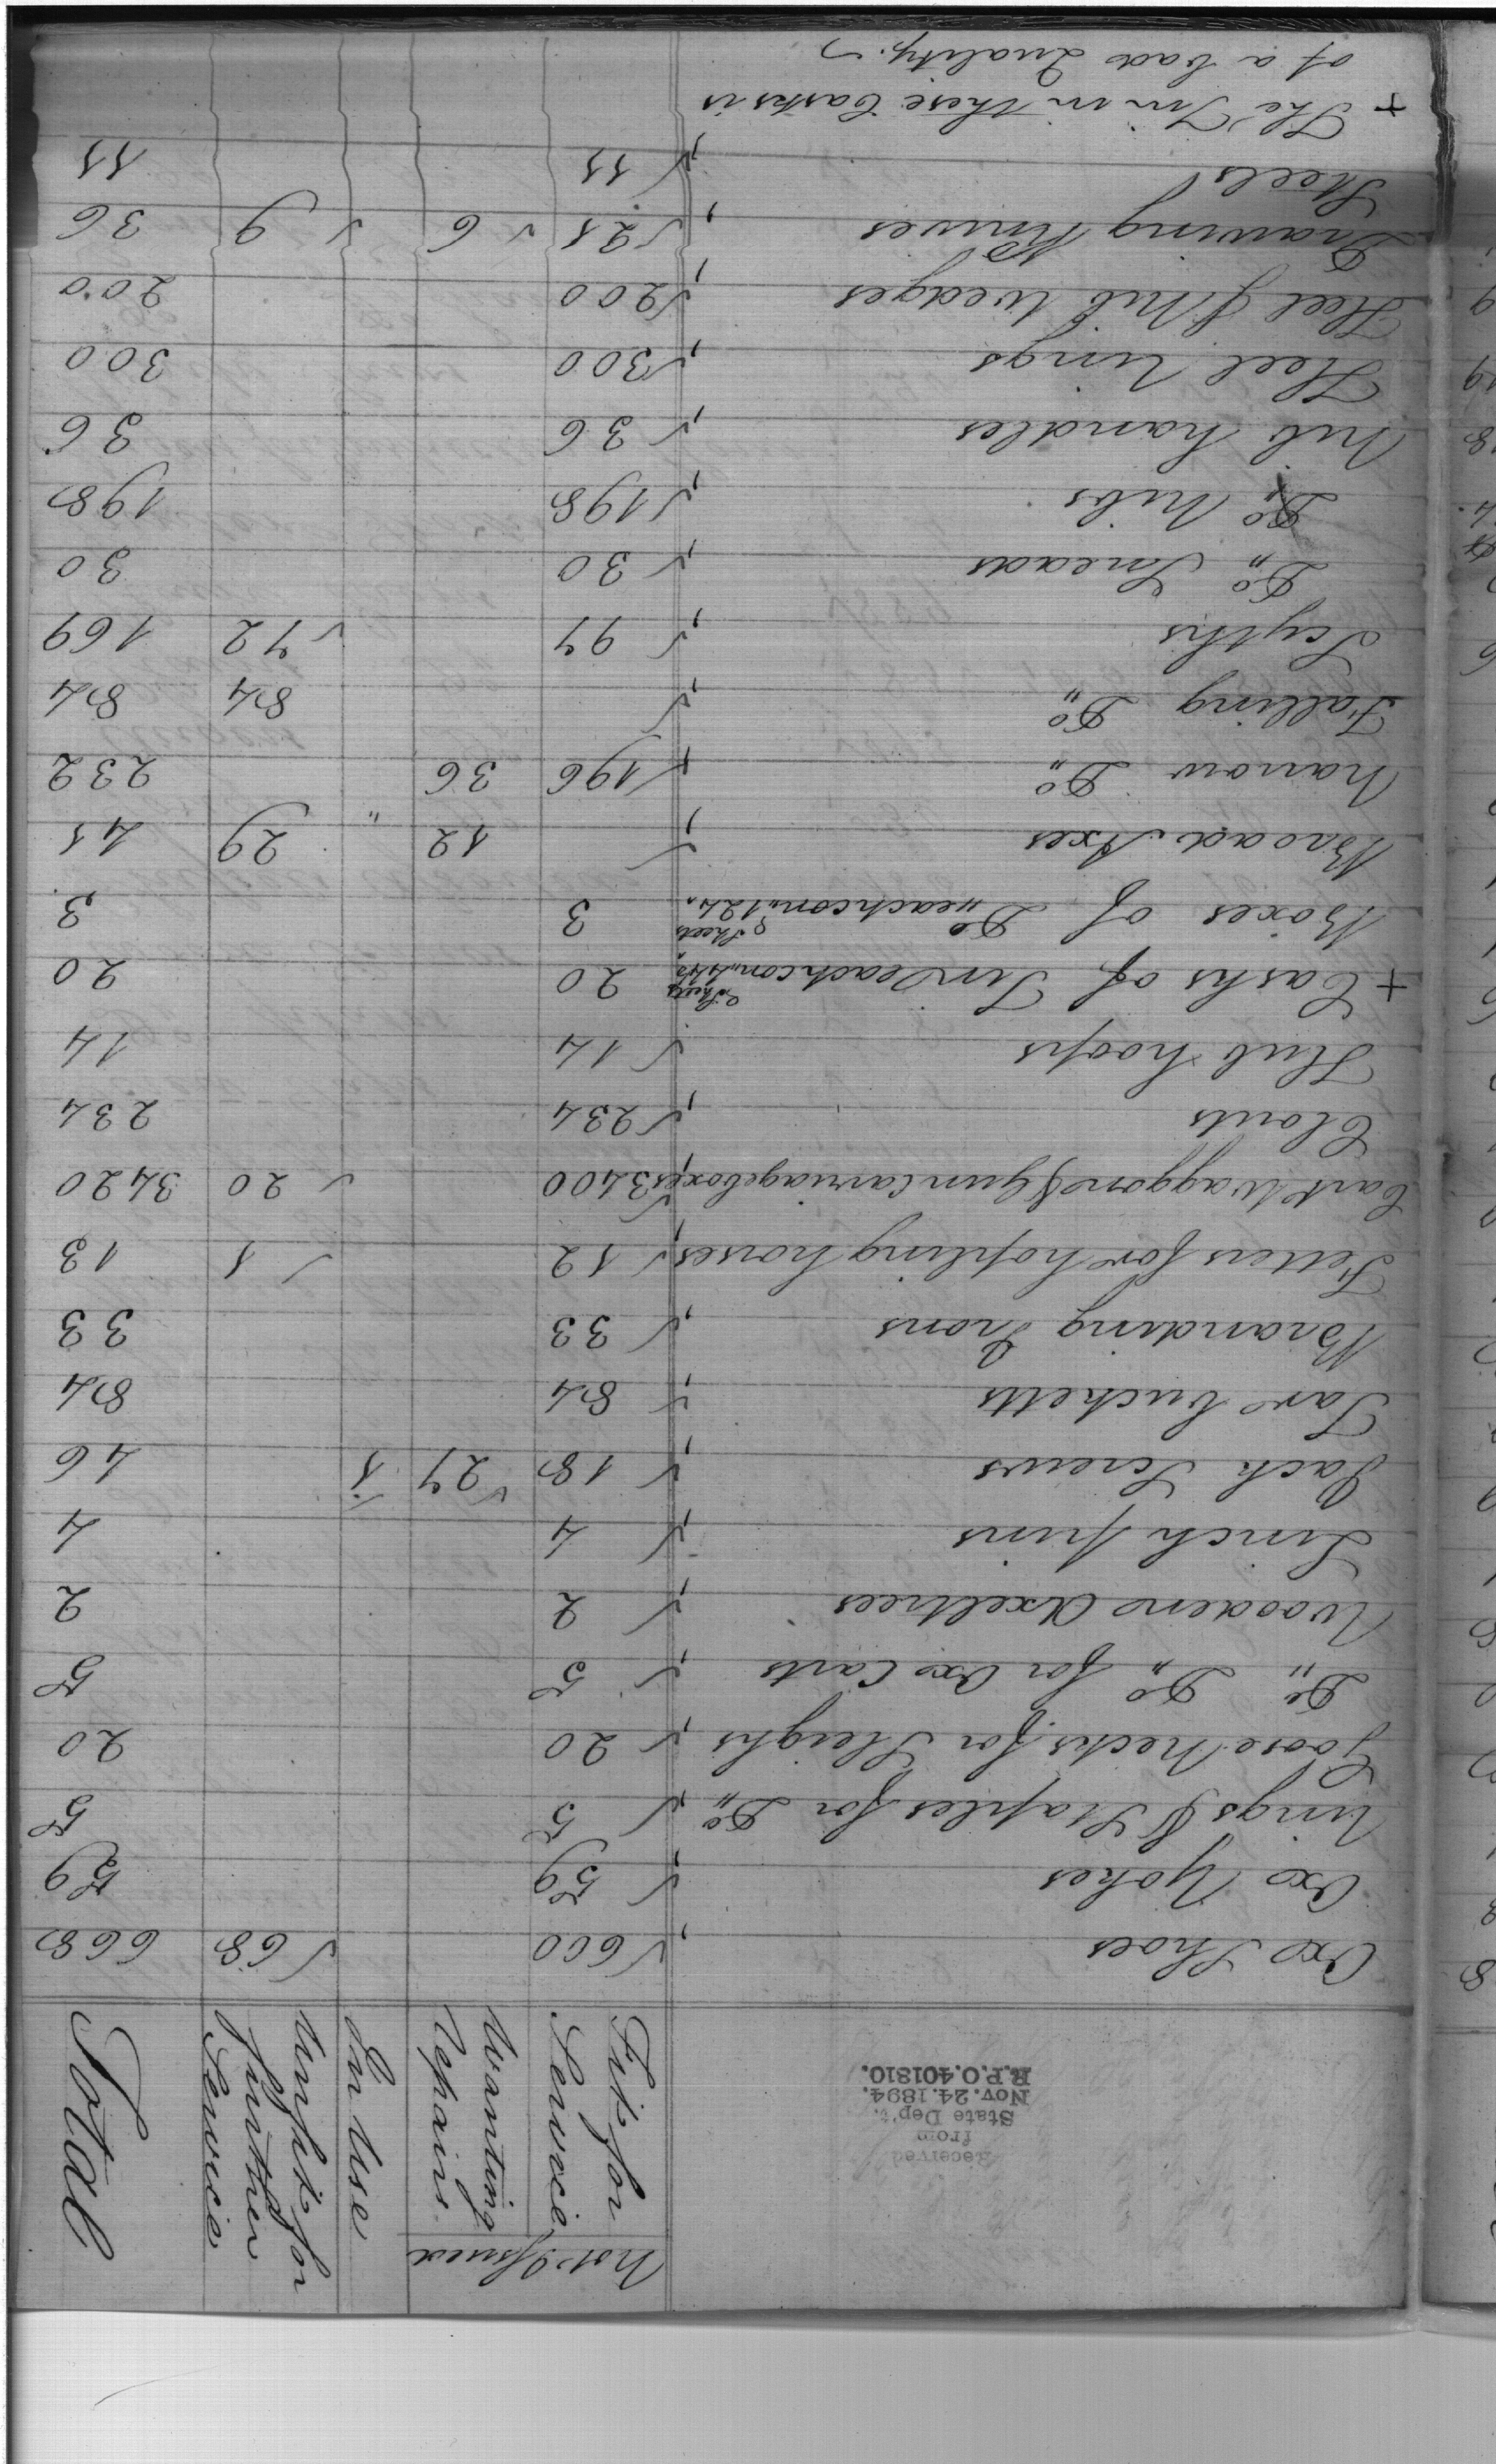 Received
from
State Dep't.
Nov. 24. 1894.
R.P.O. 401810.
Not Issued
Fit for Service
Wanting Repairs
In Use
Unfit for further Service
Total
Oxo Shoes , √ 600 √ 68 668
Oxo Yokes , √ 59 59
Rings & Staples for Do,, , √ 5 5
Goose Necks for Sleighs , √ 20 20
Do,, Do,, for Oxo Carts , √ 5 5
Wooden Axeltrees , √ 2 2
Linch pins , √ 4 4
Jack Screws , √ 18 √ 27 √ 1 46
Tar bucketts , √ 84 84
Branding Irons , √ 33 33
Fetters for hopling horses , √ 12 √ 1 13
Cart Waggon & Gun Carriage boxes , √ 3400 √ 20 3420
Clouts , √ 234 234
Hub hoops √ 14 14
+ Casks of Tin each con,, Sheets 20 20
Boxes of Do,, each con,, 124 Sheets 3 3
Broad Axes , √ 12 " 29 41
Narrow Do,, + √ 196 36 232
Falling Do,, , √ 84 84
Scyths , √ 97 √ 72 169
Do,, Sneads , √ 30 30
Do,, Nibs , √ 198 198
Nib handles , √ 36 36
Heel Rings , √ 300 300
Heel & Nib Wedges , √ 200 200
Drawing Knives , √ 21 √ 6 √ 9 36
Steels , √ 11 11
+ The Tin in these Casks is
of a bad Quality.